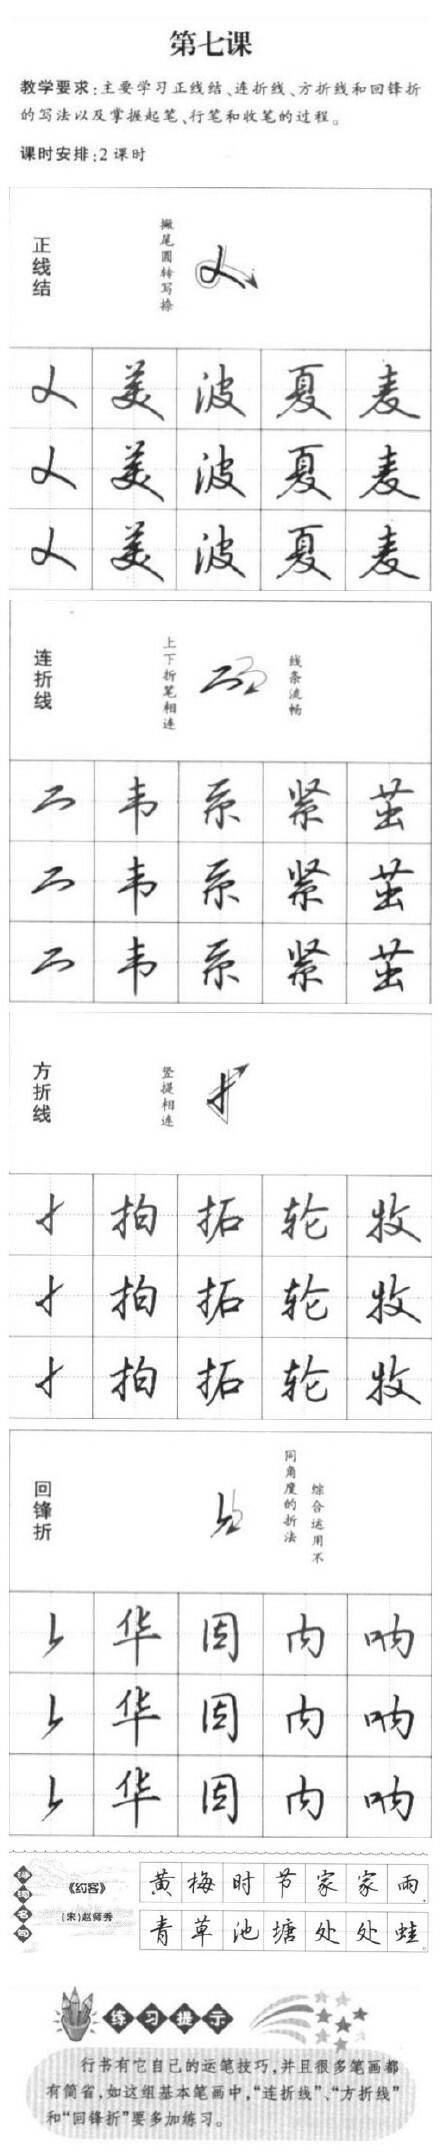 第七课
教学要求:主要学习正线结、连折线、方折线和回锋折
的写法以及掌握起笔、行笔和收笔的过程。
课时安排:2课时
正线结
撇尾圆转写捺
美 波 夏 麦
美 波 夏 麦
美 波 夏 麦
连折线
上下折笔相连
线条流畅
韦 系 紧 茧
韦 系 紧 茧
韦 系 紧 茧
方折线
竖提相连
拍 拓 轮 牧
拍 拓 轮 牧
拍 拓 轮 牧
回锋折
综合运用不
同角度的折法
华 因 内 呐
华 因 内 呐
华 因 内 呐
诗词名句
《约客》
(宋)赵师秀
黄梅时节家家雨,
青草池塘处处蛙。
练习提示
行书有它自己的运笔技巧,并且很多笔画都
有简省,如这组基本笔画中,“连折线”、“方折线”
和“回锋折”要多加练习。